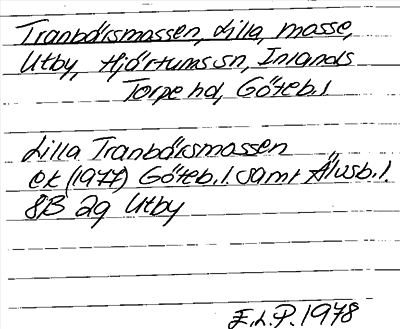 Tranbärsmossen, Lilla, mosse,
Utby, Hjärtums sn, Inlands
Torpe hd, Göteb.l.
Lilla Tranbärsmossen
ek (1977) Göteb.l. samt Älvsb.l.
8B 2g Utby
E.L.P. 1978